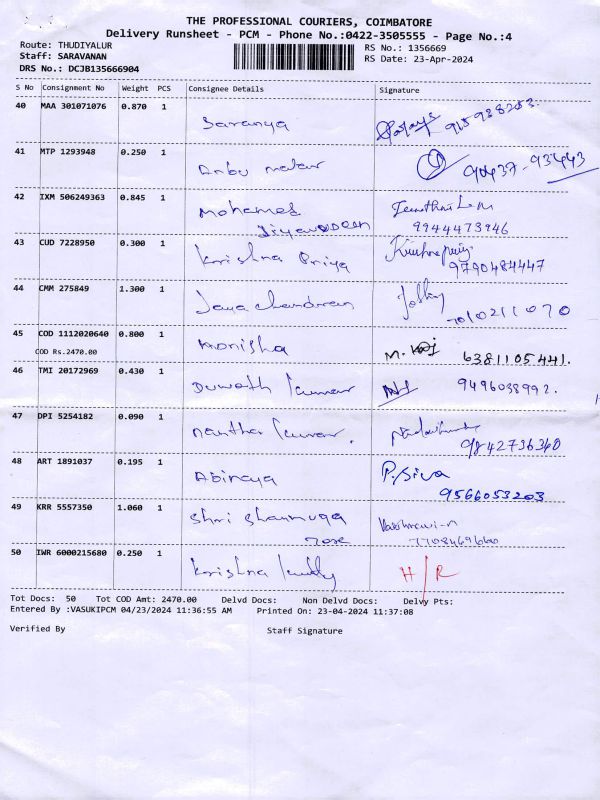 THE PROFESSIONAL COURIERS, COIMBATORE
Delivery Runsheet - PCM - Phone No.:0422-3505555 - Page No.:4
Route: THUDIYALUR
RS No.: 1356669
Staff: SARAVANAN
RS Date: 23-Apr-2024
DRS No.: DCJB135666904
S No Consignment No Weight PCS Consignee Details Signature
40 MAA 301071076 0.870 1 Saranya
41 MTP 1293948 0.250 1 90437-93443
42 IXM 506249363 0.845 1 Mohamed
9944473946
43 CUD 7228950 0.300 1 Krishna Priya
9790484447
44 CMM 275849 1.300 1 Jaya chandran
7010211070
45 COD 1112020640 0.800 1 Monisha M. 6381105441.
COD Rs.2470.00
46 TMI 20172969 0.430 1 kumar 9496038992.
47 DPI 5254182 0.090 1 kumar.
9842736360
48 ART 1891037 0.195 1 Abinaya P. Siva
9566053203
49 KRR 5557350 1.060 1 Shri Shanmuga
50 IWR 6000215680 0.250 1 Krishna H/R
Tot Docs: 50 Tot COD Amt: 2470.00 Delvd Docs: Non Delvd Docs: Delvy Pts:
Entered By :VASUKIPCM 04/23/2024 11:36:55 AM Printed On: 23-04-2024 11:37:08
Verified By Staff Signature